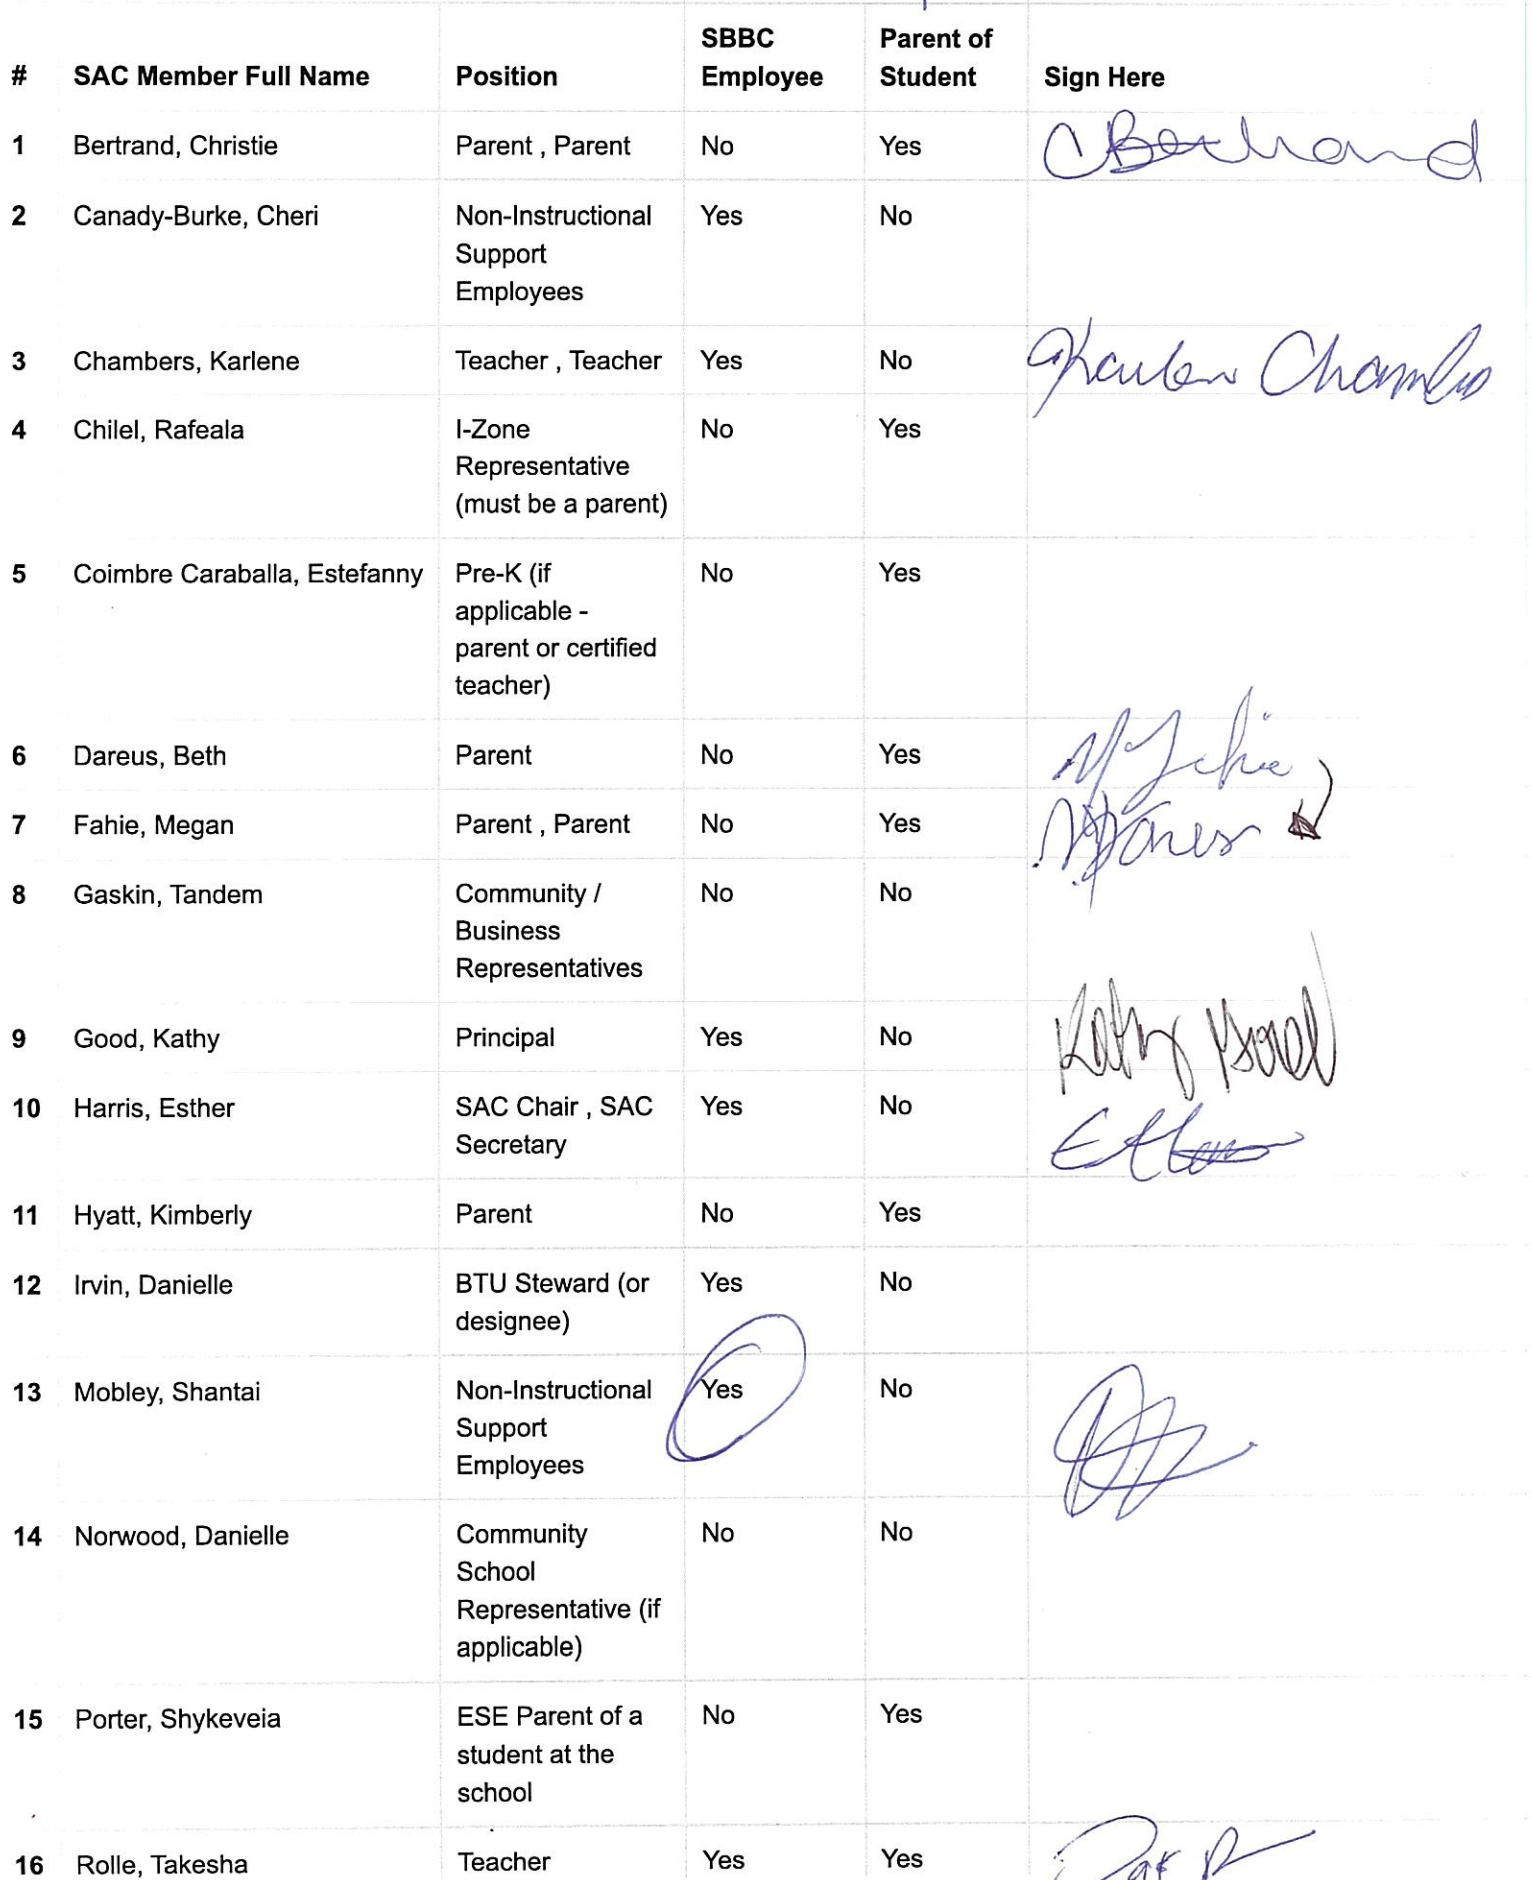 SBBC Parent of
# SAC Member Full Name Position Employee Student Sign Here
1 Bertrand, Christie Parent , Parent No Yes CBertrand
2 Canady-Burke, Cheri Non-Instructional Yes No
Support
Employees
3 Chambers, Karlene Teacher , Teacher Yes No Karlene Chambers
4 Chilel, Rafeala I-Zone No Yes
Representative
(must be a parent)
5 Coimbre Caraballa, Estefanny Pre-K (if No Yes
applicable -
parent or certified
teacher)
6 Dareus, Beth Parent No Yes
7 Fahie, Megan Parent , Parent No Yes
8 Gaskin, Tandem Community / No No
Business
Representatives
9 Good, Kathy Principal Yes No Kathy Good
10 Harris, Esther SAC Chair , SAC Yes No
Secretary
11 Hyatt, Kimberly Parent No Yes
12 Irvin, Danielle BTU Steward (or Yes No
designee)
13 Mobley, Shantai Non-Instructional Yes No
Support
Employees
14 Norwood, Danielle Community No No
School
Representative (if
applicable)
15 Porter, Shykeveia ESE Parent of a No Yes
student at the
school
16 Rolle, Takesha Teacher Yes Yes